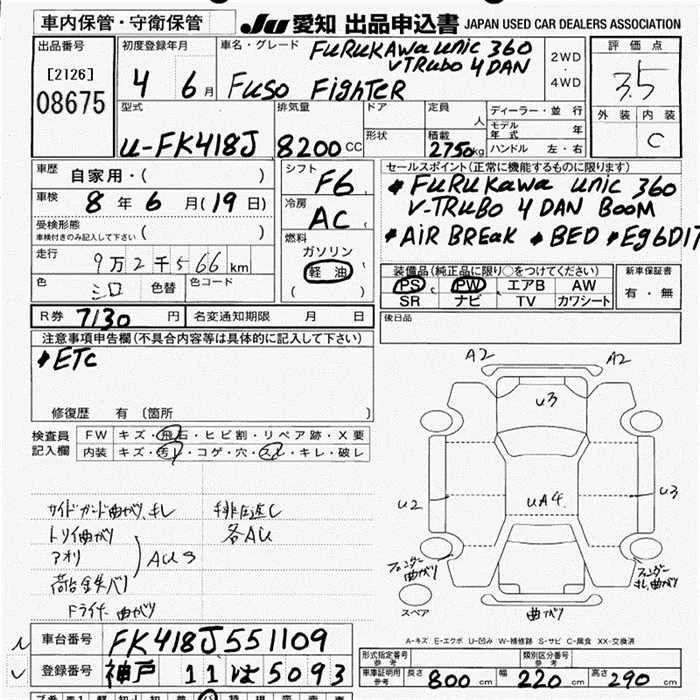 車内保管・守衛保管 JU 愛知 出品申込書 JAPAN USED CAR DEALERS ASSOCIATION
出品番号 [2126] 08675
初度登録年月 4 6月
車名・グレード FURUKAWA UNIC 360
V TRUBO 4 DAN
FUSO FIGHTER
2WD・4WD
評価点 3.5
外装 内装 C
型式 U-FK418J
排気量 8200cc
ドア 形状
定員 人
積載 2750kg
ディーラー・並行
モデル年式 年
ハンドル 左・右
車歴 自家用・( )
車検 8年6月(19日)
受検形態 車検付きのみ記入して下さい ( )
走行 9万2千566km
色 シロ 色替 色コード
シフト F6
冷房 AC
燃料 ガソリン
軽油
( )
セールスポイント(正常に機能するものに限ります)
*FURUKAWA UNIC 360
V-TRUBO 4 DAN BOOM
*AIR BREAK *BED *EG6D17
装備品(純正品に限り○をつけてください)
PS PW エアB AW
SR ナビ TV カワシート
新車保証書 有・無
後日品
R券 7130円 名変通知期限 月 日
注意事項申告欄(不具合内容等は具体的に記入して下さい)
*ETC
修復歴 有 〔箇所 〕
検査員記入欄
FW キズ・飛石・ヒビ割・リペア跡・X要
内装 キズ・汚れ・コゲ・穴・スレ・キレ・破レ
サイドガード曲がり、キレ
トリイ曲がり
アオリ
AU3
荷台鉄バリ
ドライナー曲がり
各AU
A2 A2
U3
U2 UA4 U3
フェンダー曲がり
フェンダーキレ曲がり
スペア
曲がり
A-キズ E-エクボ U-凹み W-補修跡 S-サビ C-腐食 XX-交換済
車台番号 FK418J551109
登録番号 神戸 11 は 5093
形式指定番号 参考
類別区分番号 参考
車庫証明用参考 長さ 800cm 幅 220cm 高さ 290cm